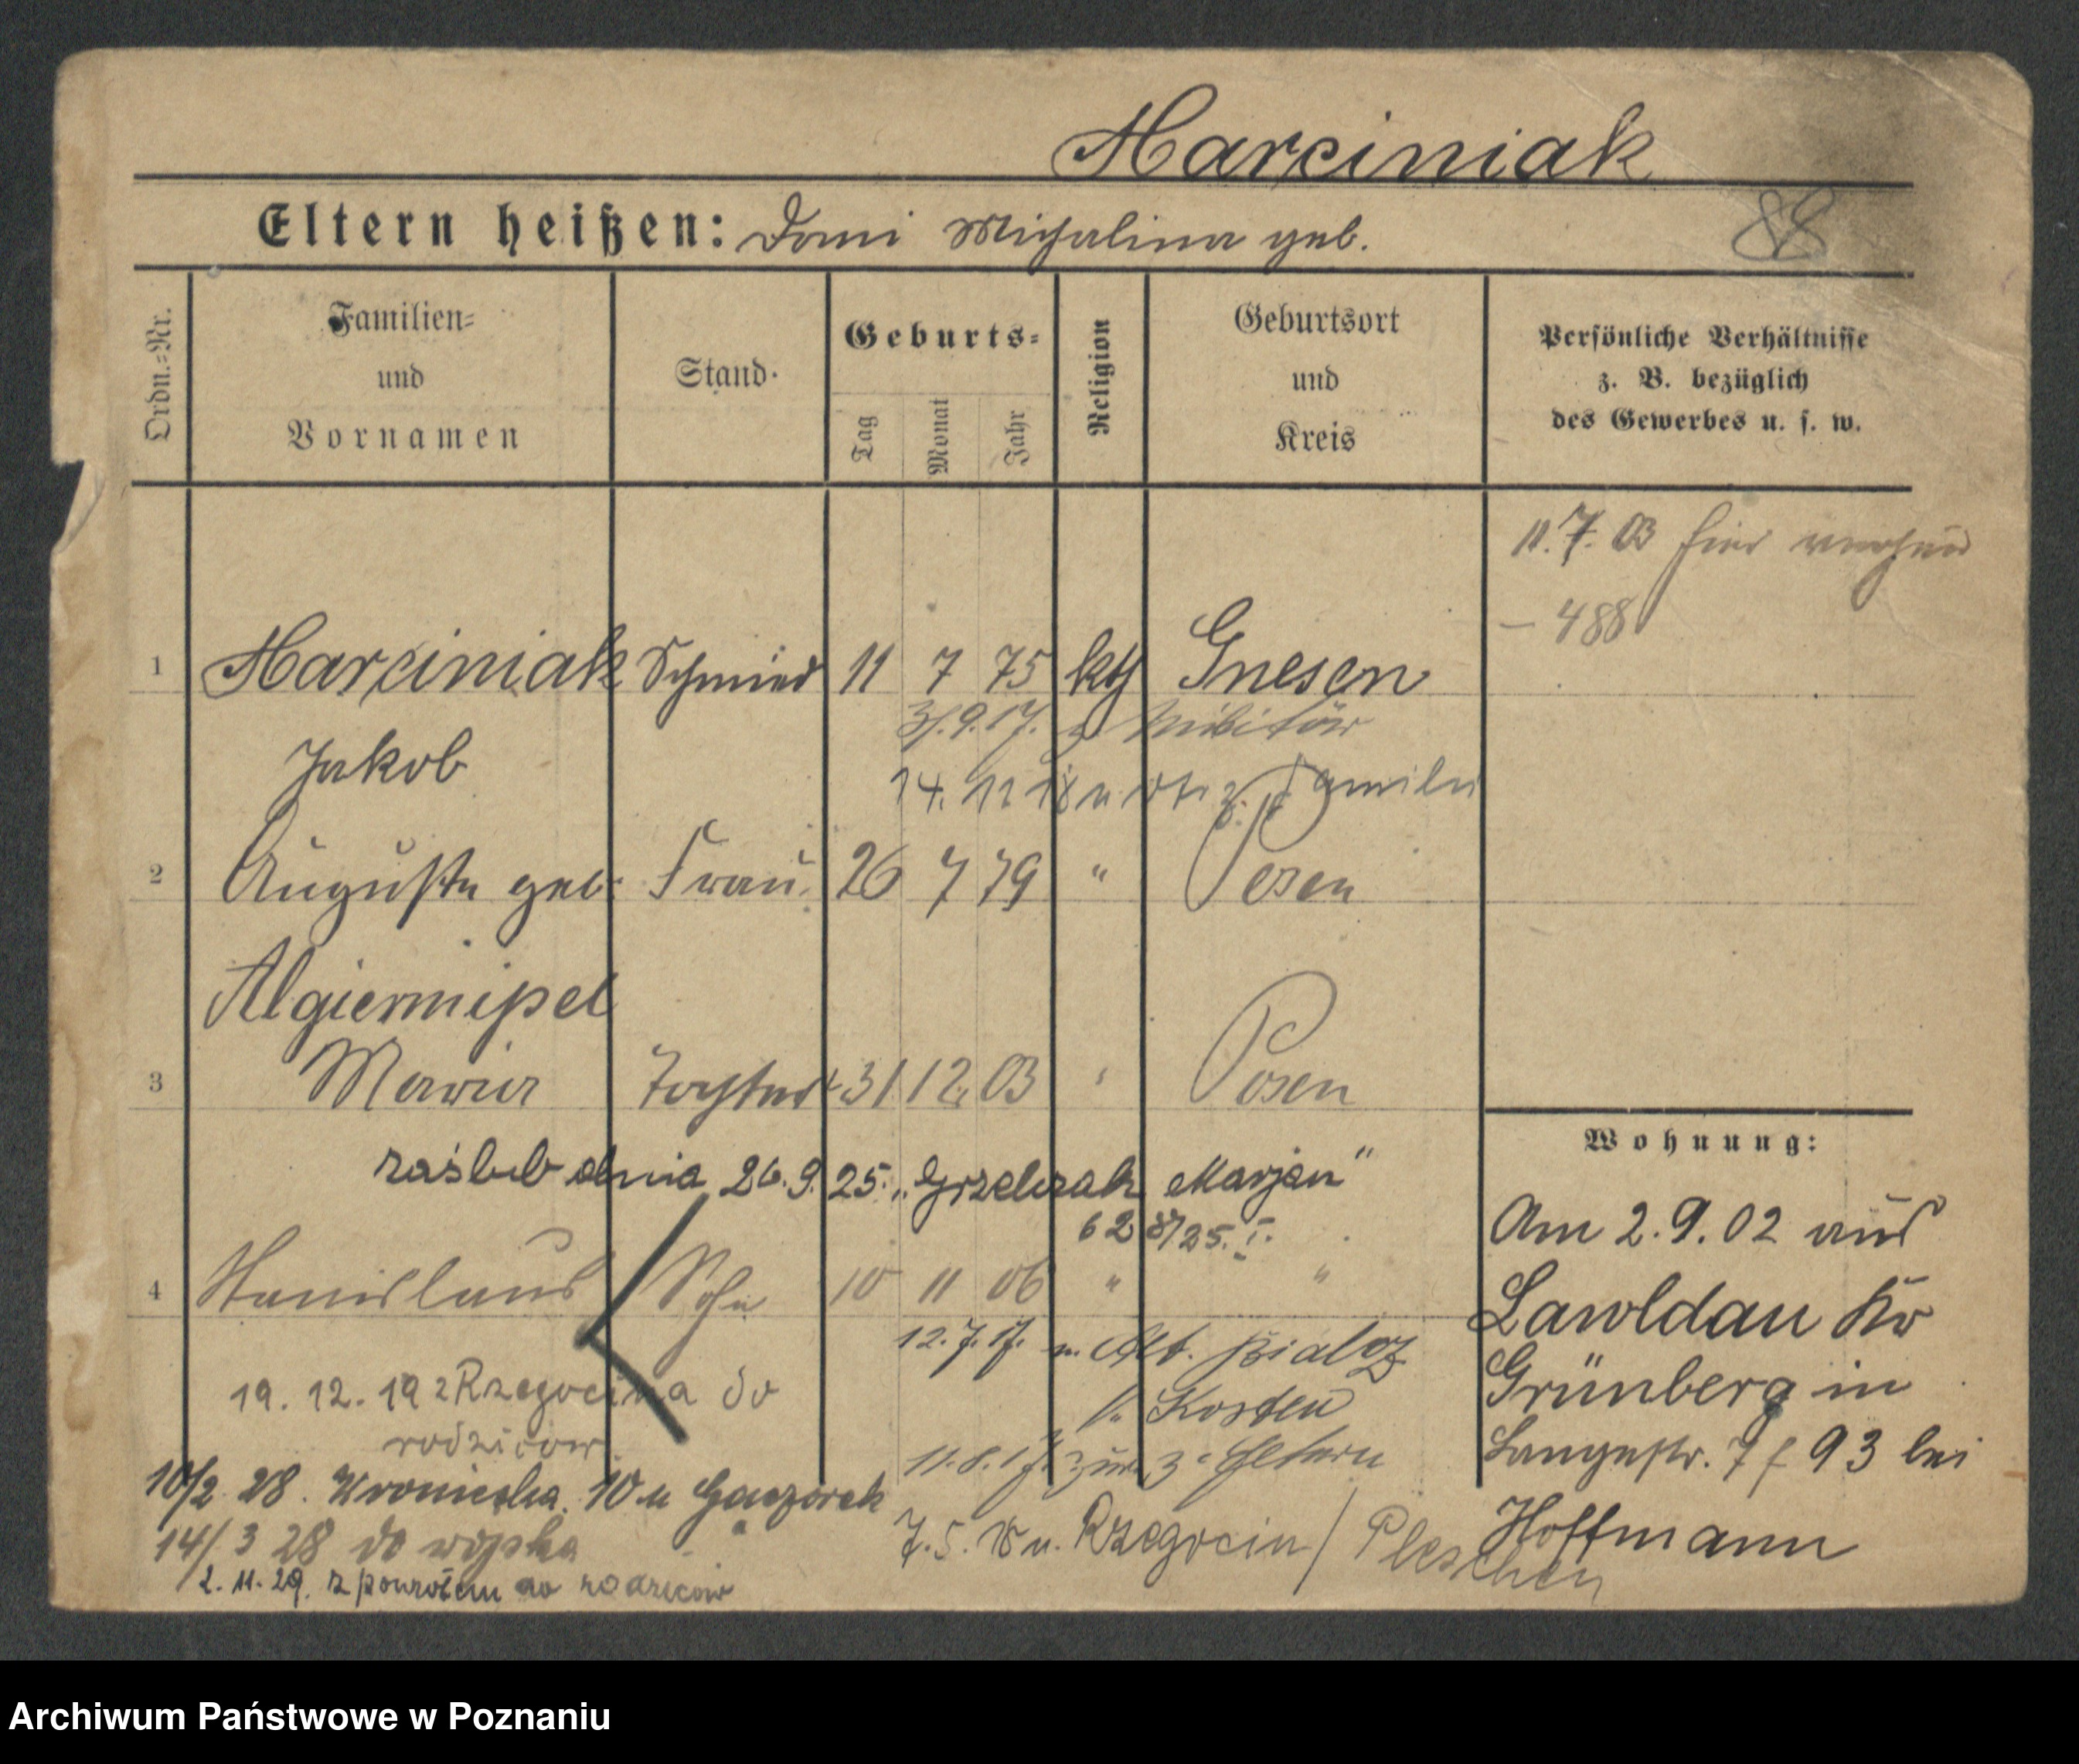 Marciniak
Eltern heißen: Michalina geb.
88
Ordn.=Nr.
Familien=
und
Vornamen
Stand.
Geburts=
Tag
Monat
Jahr
Religion
Geburtsort
und
Kreis
Persönliche Verhältnisse
z. B. bezüglich
des Gewerbes u. s. w.
11.7.03 hier
– 488
1 Marciniak Schmied 11 7 75 kth Gnesen
9.17. z Militär
Jakob
14. 11 18 v. z. Familie
2 Auguste geb. Frau 26 7 79 " Posen
Algiermißel
3 Maria Tochter 31 12 03 " Posen
zaślub dnia 26.9.25. „Grzelczak Marjan"
62 25. I.
4 Stanislaus Sohn 10 11 06 " "
12.7.17. n. Alt. Bialcz
19.12.19 z Rzegocina do
Kosten
rodziców
11.8.17. zur. z. Eltern
10/2 28. Wroniecka 10 u Gaczorek
14/3 28 do wojska
7.5.18 n. Rzegocin / Pleschen
2.11.29. z powrotem do rodziców
Wohnung:
Am 2.9.02 aus
Lawoldau Kr
Grünberg in
Langestr. 7 f 93 bei
Hoffmann
Archiwum Państwowe w Poznaniu